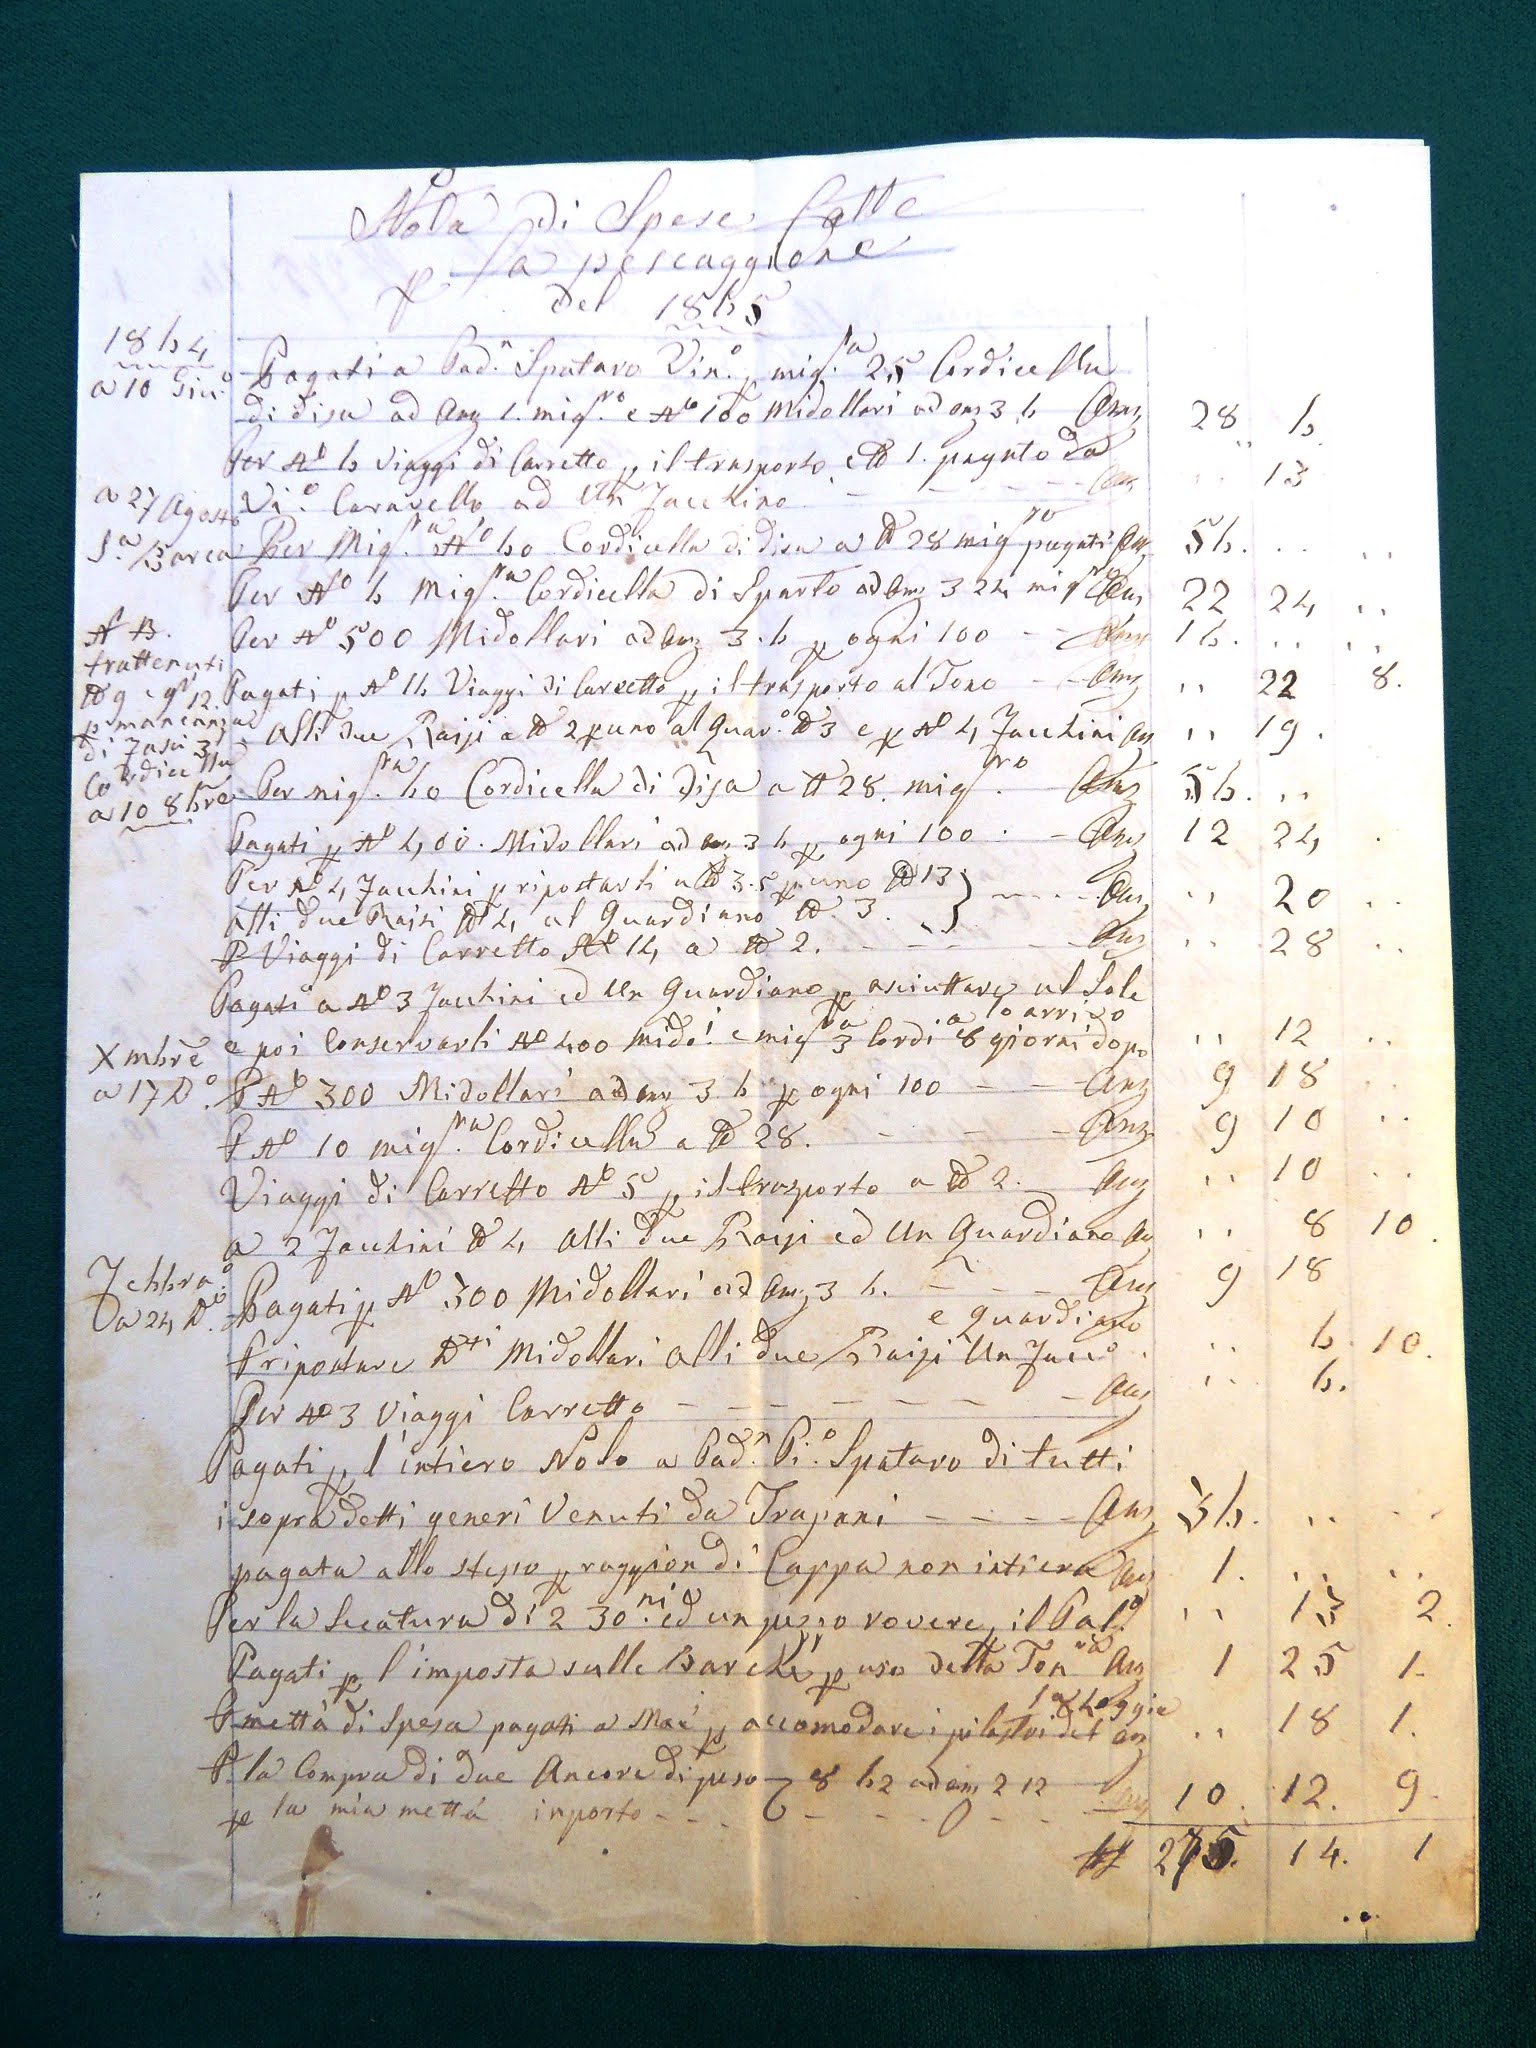 Nota di Spese fatte
p la pescaggione
del 1865
1864
a 10 Giu.o
Pagati a Pad.n Spataro Vin.o p mig.ra 25 Cordicella
di disa ad Onz 1. mig.ro e No 100 Midollari ad onz 3 6 Onz 28 6
Per No 6 viaggi di Carretto p il trasporto e tt 1. pagato da
Vi.o Caravello ad Un Facchino - - - - Onz ,, 13
a 27 Agosto
S.a Barca
Per Mig.ra No 60 Cordicella di disa a tt 28 mig.ro pagati Onz 56. .. ..
Per No 6 Mig.ra Cordicella di Sparto ad Onz 3 24 mig.ro Onz 22 24 ..
N B.
trattenuti
tt 9 e g.ni 12.
p mancanza
di Fasci 3
Cordicella
Per No 500 Midollari ad Onz 3. 6 p ogni 100 - - Onz 16. .. ..
Pagati p No 16 Viaggi di Carretto p il trasporto al Tono - - Onz ,, 22 8.
Alli due Raisi a tt 2 p uno al Guar.o tt 3 e p No 4 Facchini Onz ,, 19.
a 10 8bre
Per mig.ra 60 Cordicella di disa a tt 28. mig.ro Onz 56. ..
Pagati p No 400. Midollari ad onz 3 6 p ogni 100 . - Onz 12 24 .
Per No 4 Facchini p ripostarli a tt 3.5 p uno tt 13
alli due Raisi tt 4 al Guardiano tt 3. } - - - Onz ,, 20 ..
P Viaggi di Carretto No 14 a tt 2. - - - - Onz ,, 28 ..
Pagati a No 3 Facchini ed Un Guardiano p asciuttare al Sole
lo arrivo
e poi Conservarli No 400 mido.i e mig.ra 3 Cordi.a 8 giorni dopo ,, 12 ..
Xmbre
a 17 D.o
P No 300 Midollari ad onz 3. 6 p ogni 100 - - - Onz 9 18 ..
P No 10 mig.ra Cordicella a tt 28. - - - Onz 9 10 ..
Viaggi di Carretto No 5 p il trasporto a tt 2. - Onz ,, 10 ..
a 2 Facchini tt 4 alli due Raisi ed Un Guardiano Onz ,, 8 10.
Febbra.o
a 24 D.o
Pagati p No 300 Midollari ad Onz 3 6. - - - Onz 9 18
e Guardiano
P ripostare D.ti Midollari alli due Raisi Un Facc.o . ,, 6. 10.
Per No 3 Viaggi Carretto - - - - - - - Onz ,, 6.
Pagati p l'intiero Nolo a Pad.n Vi.o Spataro di tutti
i sopradetti generi Venuti da Trapani - - - - Onz 36. .. ..
pagata allo stesso p raggion di Cappa non intiera Onz 1. .. ..
Per la Secatura di 2 30.ni ed un pezzo rovere p il Pal.o ,, 13 2.
Pagati p l'imposta sulle Barche p uso della Ton.ra Onz 1 25 1.
la Loggia
P mettà di Spesa pagati a p accomodare i pilastri del onz ,, 18 1.
P. la Compra di due Ancore di peso 8 62 ad onz 2 12 Onz 10. 12. 9.
p la mia mettà inporto - - - - - -
275. 14. 1